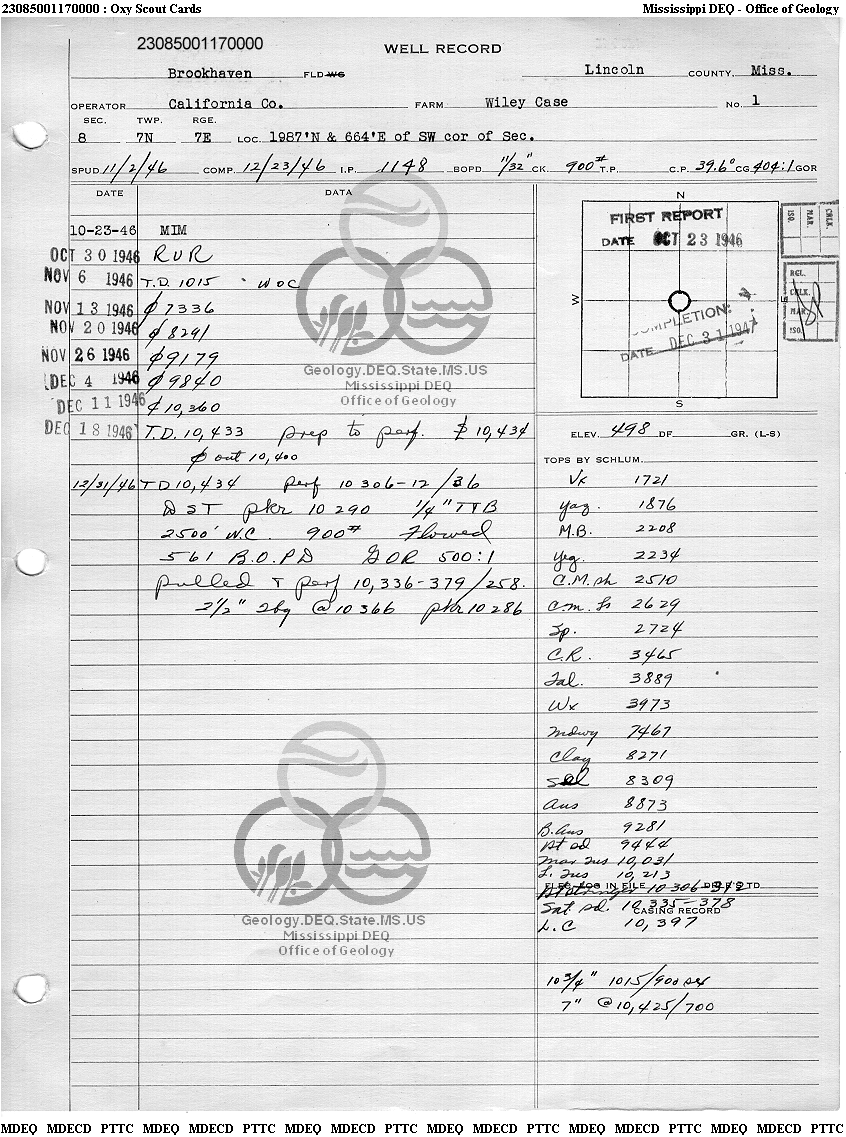 23085001170000 : Oxy Scout Cards
Mississippi DEQ - Office of Geology
23085001170000
WELL RECORD
Brookhaven FLD WG Lincoln COUNTY, Miss.
OPERATOR California Co. FARM Wiley Case NO. 1
SEC. TWP. RGE.
8 7N 7E LOC. 1987'N & 664'E of SW cor of Sec.
SPUD 11/2/46 COMP. 12/23/46 I.P. 1148 BOPD 11/32" CK. 900# T.P. C.P. 39.6° CG 404:1 GOR
DATE DATA
10-23-46 MIM
OCT 30 1946 RUR
NOV 6 1946 T.D. 1015 WOC
NOV 13 1946 ⌀ 7336
NOV 20 1946 ⌀ 8291
NOV 26 1946 ⌀ 9179
DEC 4 1946 ⌀ 9840
DEC 11 1946 ⌀ 10,360
DEC 18 1946 T.D. 10,433 prep to perf. ⌀ 10,434
⌀ out 10,400
12/31/46 TD 10,434 perf 10 306-12 /36
DST pkr 10 290 1/4" TTB
2500' W.C. 900# Flowed
561 B.O.P.D GOR 500:1
pulled T perf 10,336-379/258.
2 1/2" 2bg @ 10366 pkr 10286
N
FIRST REPORT
DATE OCT 23 1946
W
COMPLETION:
DATE DEC 31 1947
S
ISO. MAR. CHLK.
RGL.
CHLK.
MAR.
ISO.
ELEV. 498 DF GR. (L-S)
TOPS BY SCHLUM.
Vx 1721
Yaz. 1876
M.B. 2208
Yeg. 2234
C.M. sh 2510
C.M. ls 2629
Sp. 2724
C.R. 3465
Tal. 3889
Wx 3973
Mdwy 7467
Clay 8271
Sel 8309
Aus 8873
B. Aus 9281
9444
Mar Tus 10,031
L. Tus 10,213
ELEC. LOG IN FILE 10 306-312 DRLR'S TD
Sat. sd. 10 335-378
CASING RECORD
L.C 10,397
10 3/4" 1015/900 sx
7" @ 10,425/700
Geology.DEQ.State.MS.US
Mississippi DEQ
Office of Geology
Geology.DEQ.State.MS.US
Mississippi DEQ
Office of Geology
MDEQ MDECD PTTC MDEQ MDECD PTTC MDEQ MDECD PTTC MDEQ MDECD PTTC MDEQ MDECD PTTC MDEQ MDECD PTTC